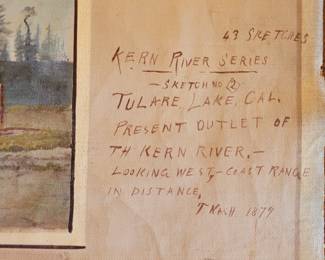 43 SKETCHES
KERN RIVER SERIES
— SKETCH NO (2)
TULARE, LAKE, CAL.
PRESENT OUTLET OF
TH KERN RIVER, —
LOOKING WEST – COAST RANGE
IN DISTANCE,
1879